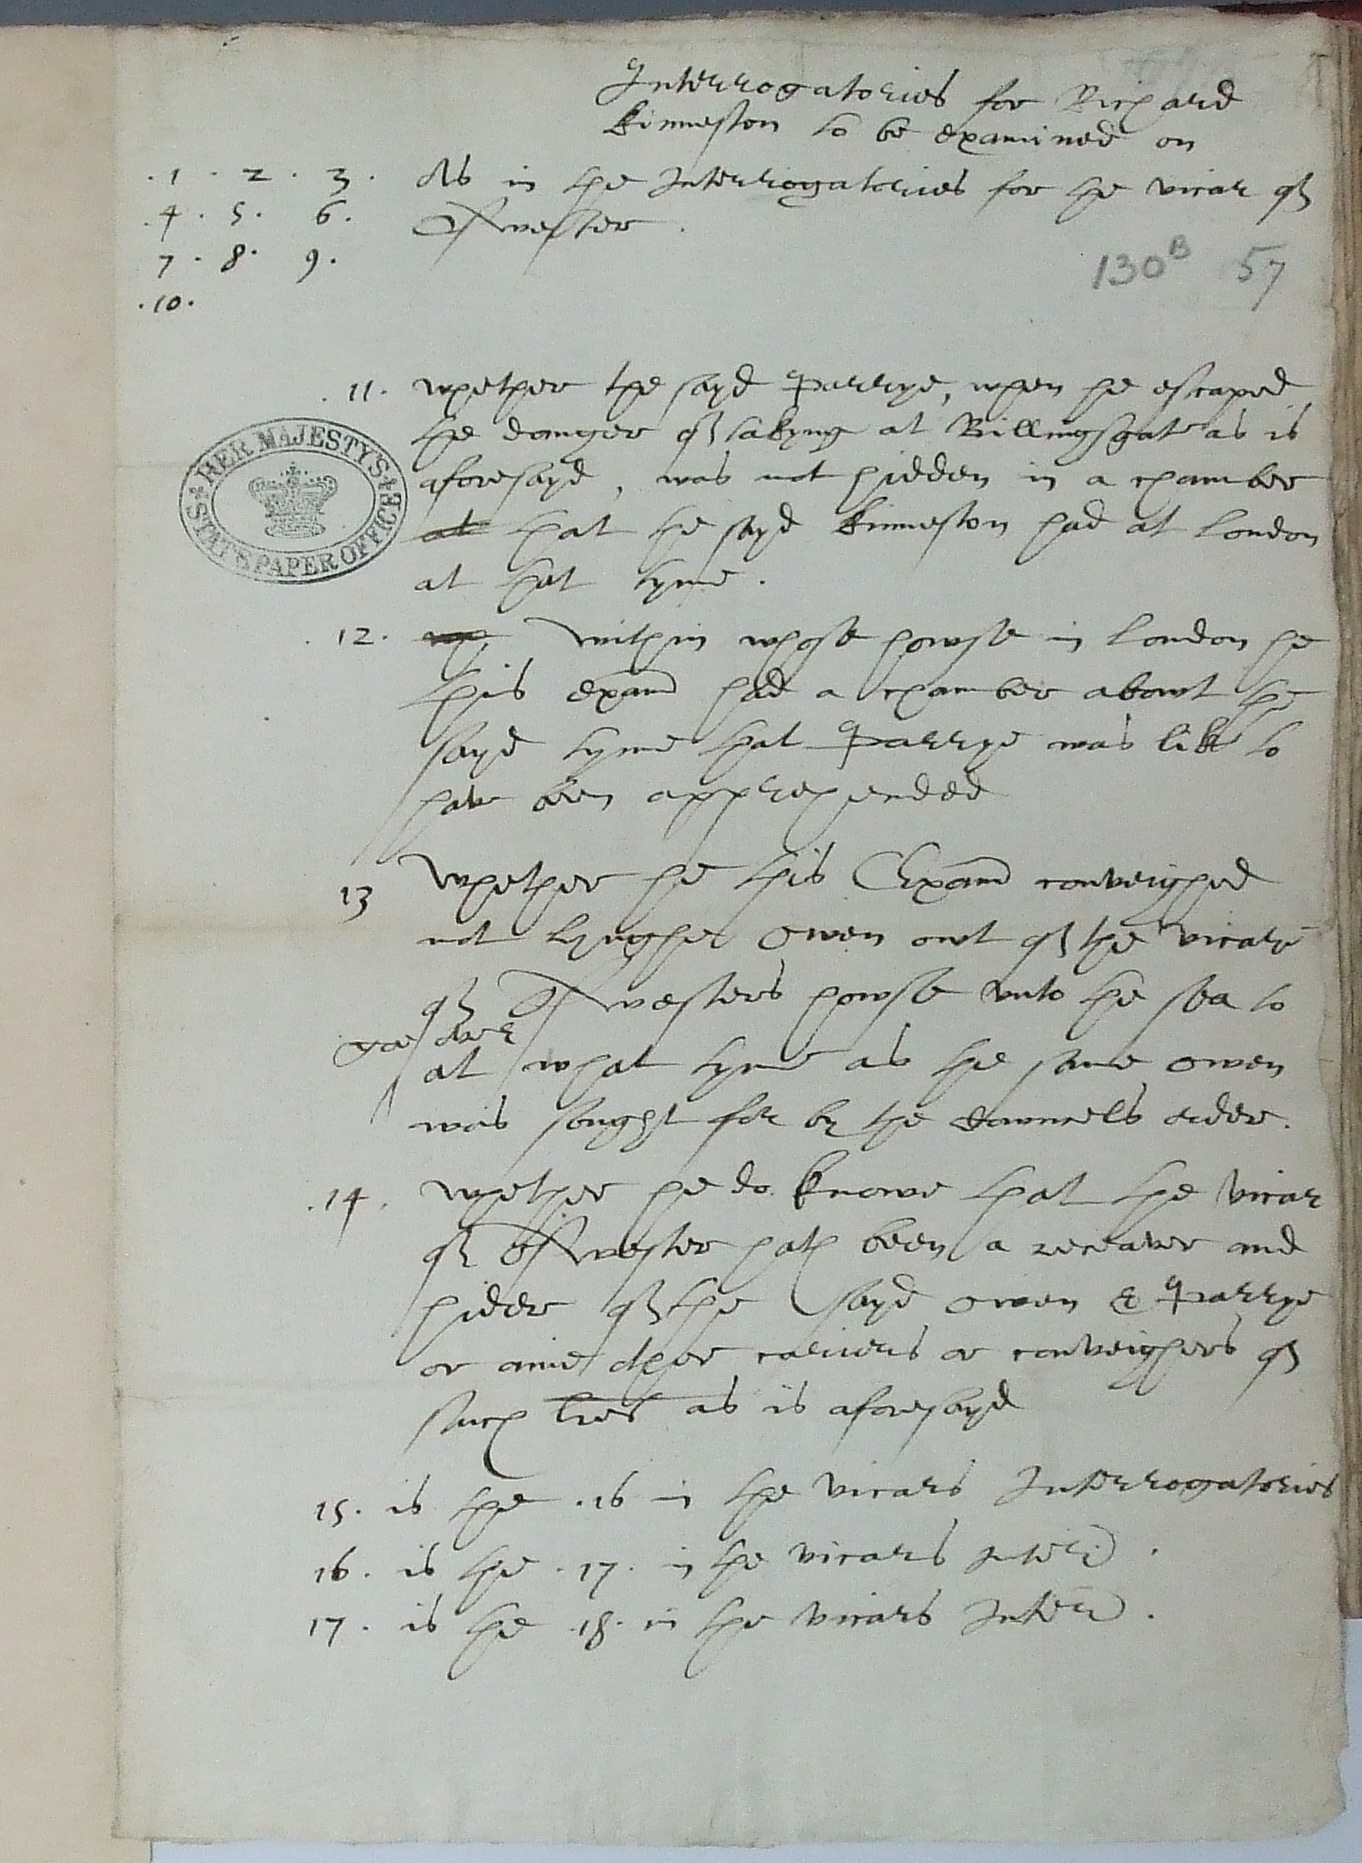 Interrogatories for Richard
kinneston to be examined on
.1. 2. 3. As in the Interrogatories for the vicar of
4. 5. 6. Oswester.
7. 8. 9.
.10.
130B 57
.11. whether the sayd Parrye, when he escaped
the danger of takyng at Billingsgate as is
aforesayd, was not hidden in a chamber
at that the sayd kinneston had at london
at that tyme.
HER MAJESTY'S
STATE PAPER OFFICE
.12. within whose howse in london he
this exam had a chamber abowt the
sayd tyme that Parrye was like to
have been apprehended
13 Whether he this Exam conveighed
not hughe Owen owt of the vicare
of Oswesters howse unto the sea to
goe over
at what tyme as the same owen
was sought for by the cowncels order.
.14. whether he do knowe that the vicar
of Oswester hath been a receaver and
hider of the sayd owen & Parrye
or anie other cariers or conveighers of
such lres as is aforesayd
15. is the .16 in the vicars Interrogatories
16. is the .17. in the vicars Interr.
17. is the .18. in the vicars Interr.